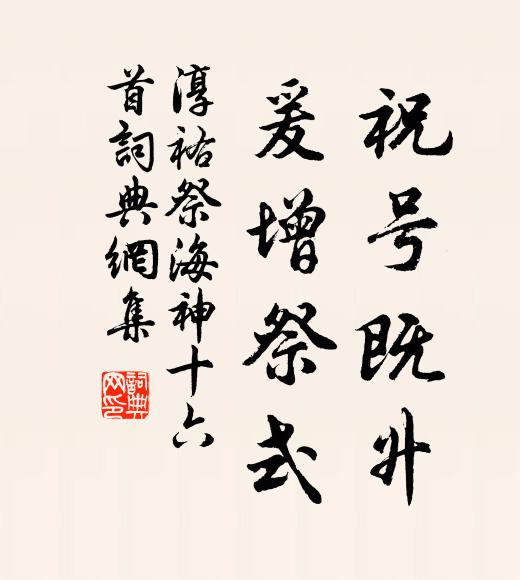 祝号既升
爰增祭式
淳祐祭海神十六
首詞典網集
詞典
网印